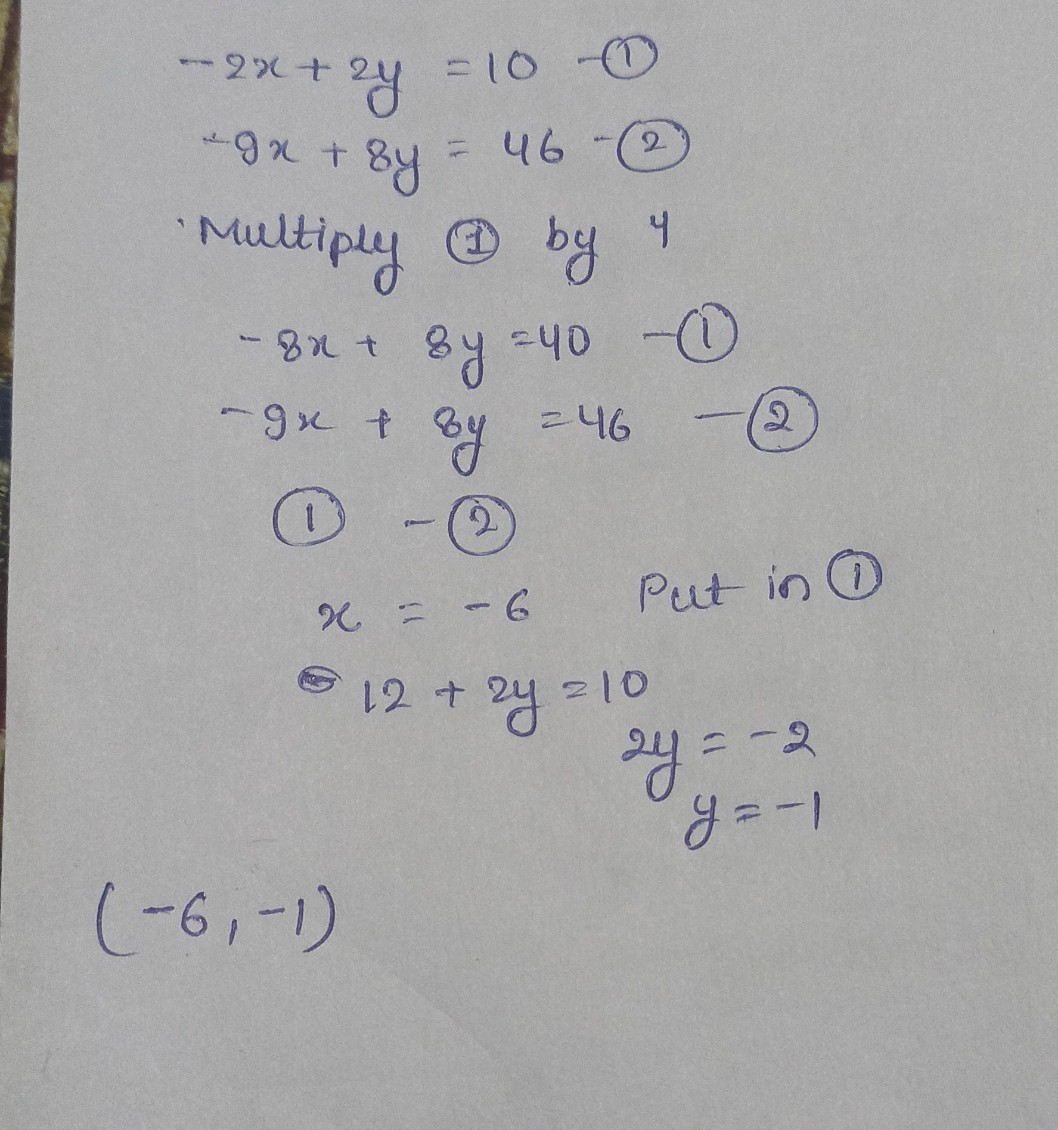 -2x + 2y = 10 - ①
-9x + 8y = 46 - ②
Multiply ① by 4
-8x + 8y = 40 - ①
-9x + 8y = 46 - ②
① - ②
x = -6 Put in ①
12 + 2y = 10
2y = -2
y = -1
(-6, -1)